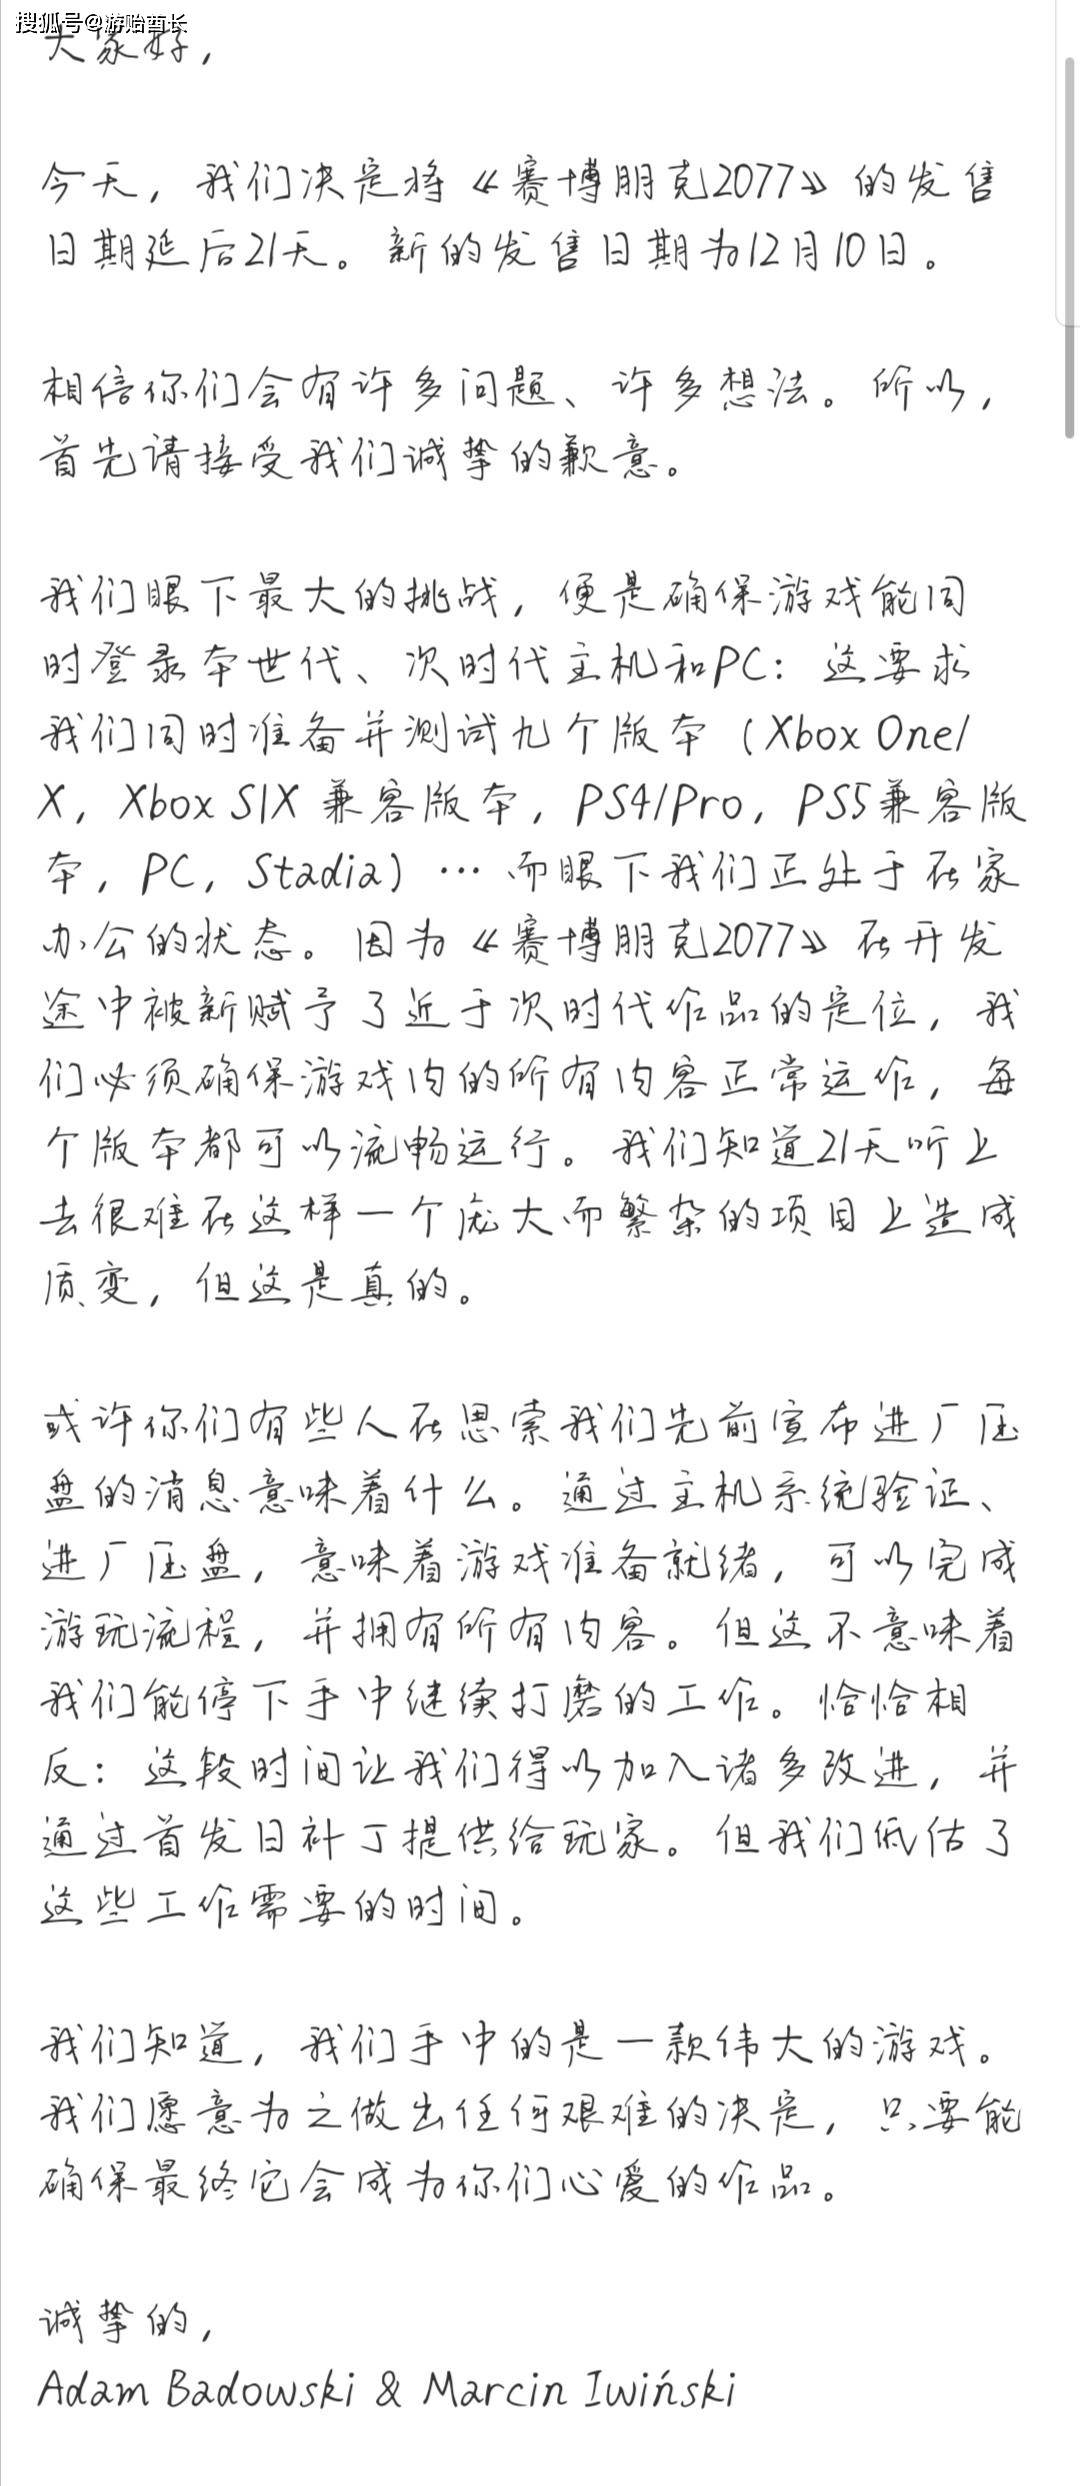 搜狐号@游贻酋长
大家好，
今天，我们决定将《赛博朋克2077》的发售
日期延后21天。新的发售日期为12月10日。
相信你们会有许多问题、许多想法。所以，
首先请接受我们诚挚的歉意。
我们眼下最大的挑战，便是确保游戏能同
时登录本世代、次时代主机和PC：这要求
我们同时准备并测试九个版本（Xbox One/
X，Xbox S|X 兼容版本，PS4/Pro，PS5兼容版
本，PC，Stadia）…而眼下我们正处于在家
办公的状态。因为《赛博朋克2077》在开发
途中被新赋予了近于次时代作品的定位，我
们必须确保游戏内的所有内容正常运作，每
个版本都可以流畅运行。我们知道21天听上
去很难在这样一个庞大而繁杂的项目上造成
质变，但这是真的。
或许你们有些人在思索我们先前宣布进厂压
盘的消息意味着什么。通过主机系统验证、
进厂压盘，意味着游戏准备就绪，可以完成
游玩流程，并拥有所有内容。但这不意味着
我们能停下手中继续打磨的工作。恰恰相
反：这段时间让我们得以加入诸多改进，并
通过首发日补丁提供给玩家。但我们低估了
这些工作需要的时间。
我们知道，我们手中的是一款伟大的游戏。
我们愿意为之做出任何艰难的决定，只要能
确保最终它会成为你们心爱的作品。
诚挚的，
Adam Badowski & Marcin Iwiński